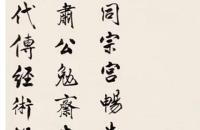 同宗宮暢
肅公勉齋
代傳經術